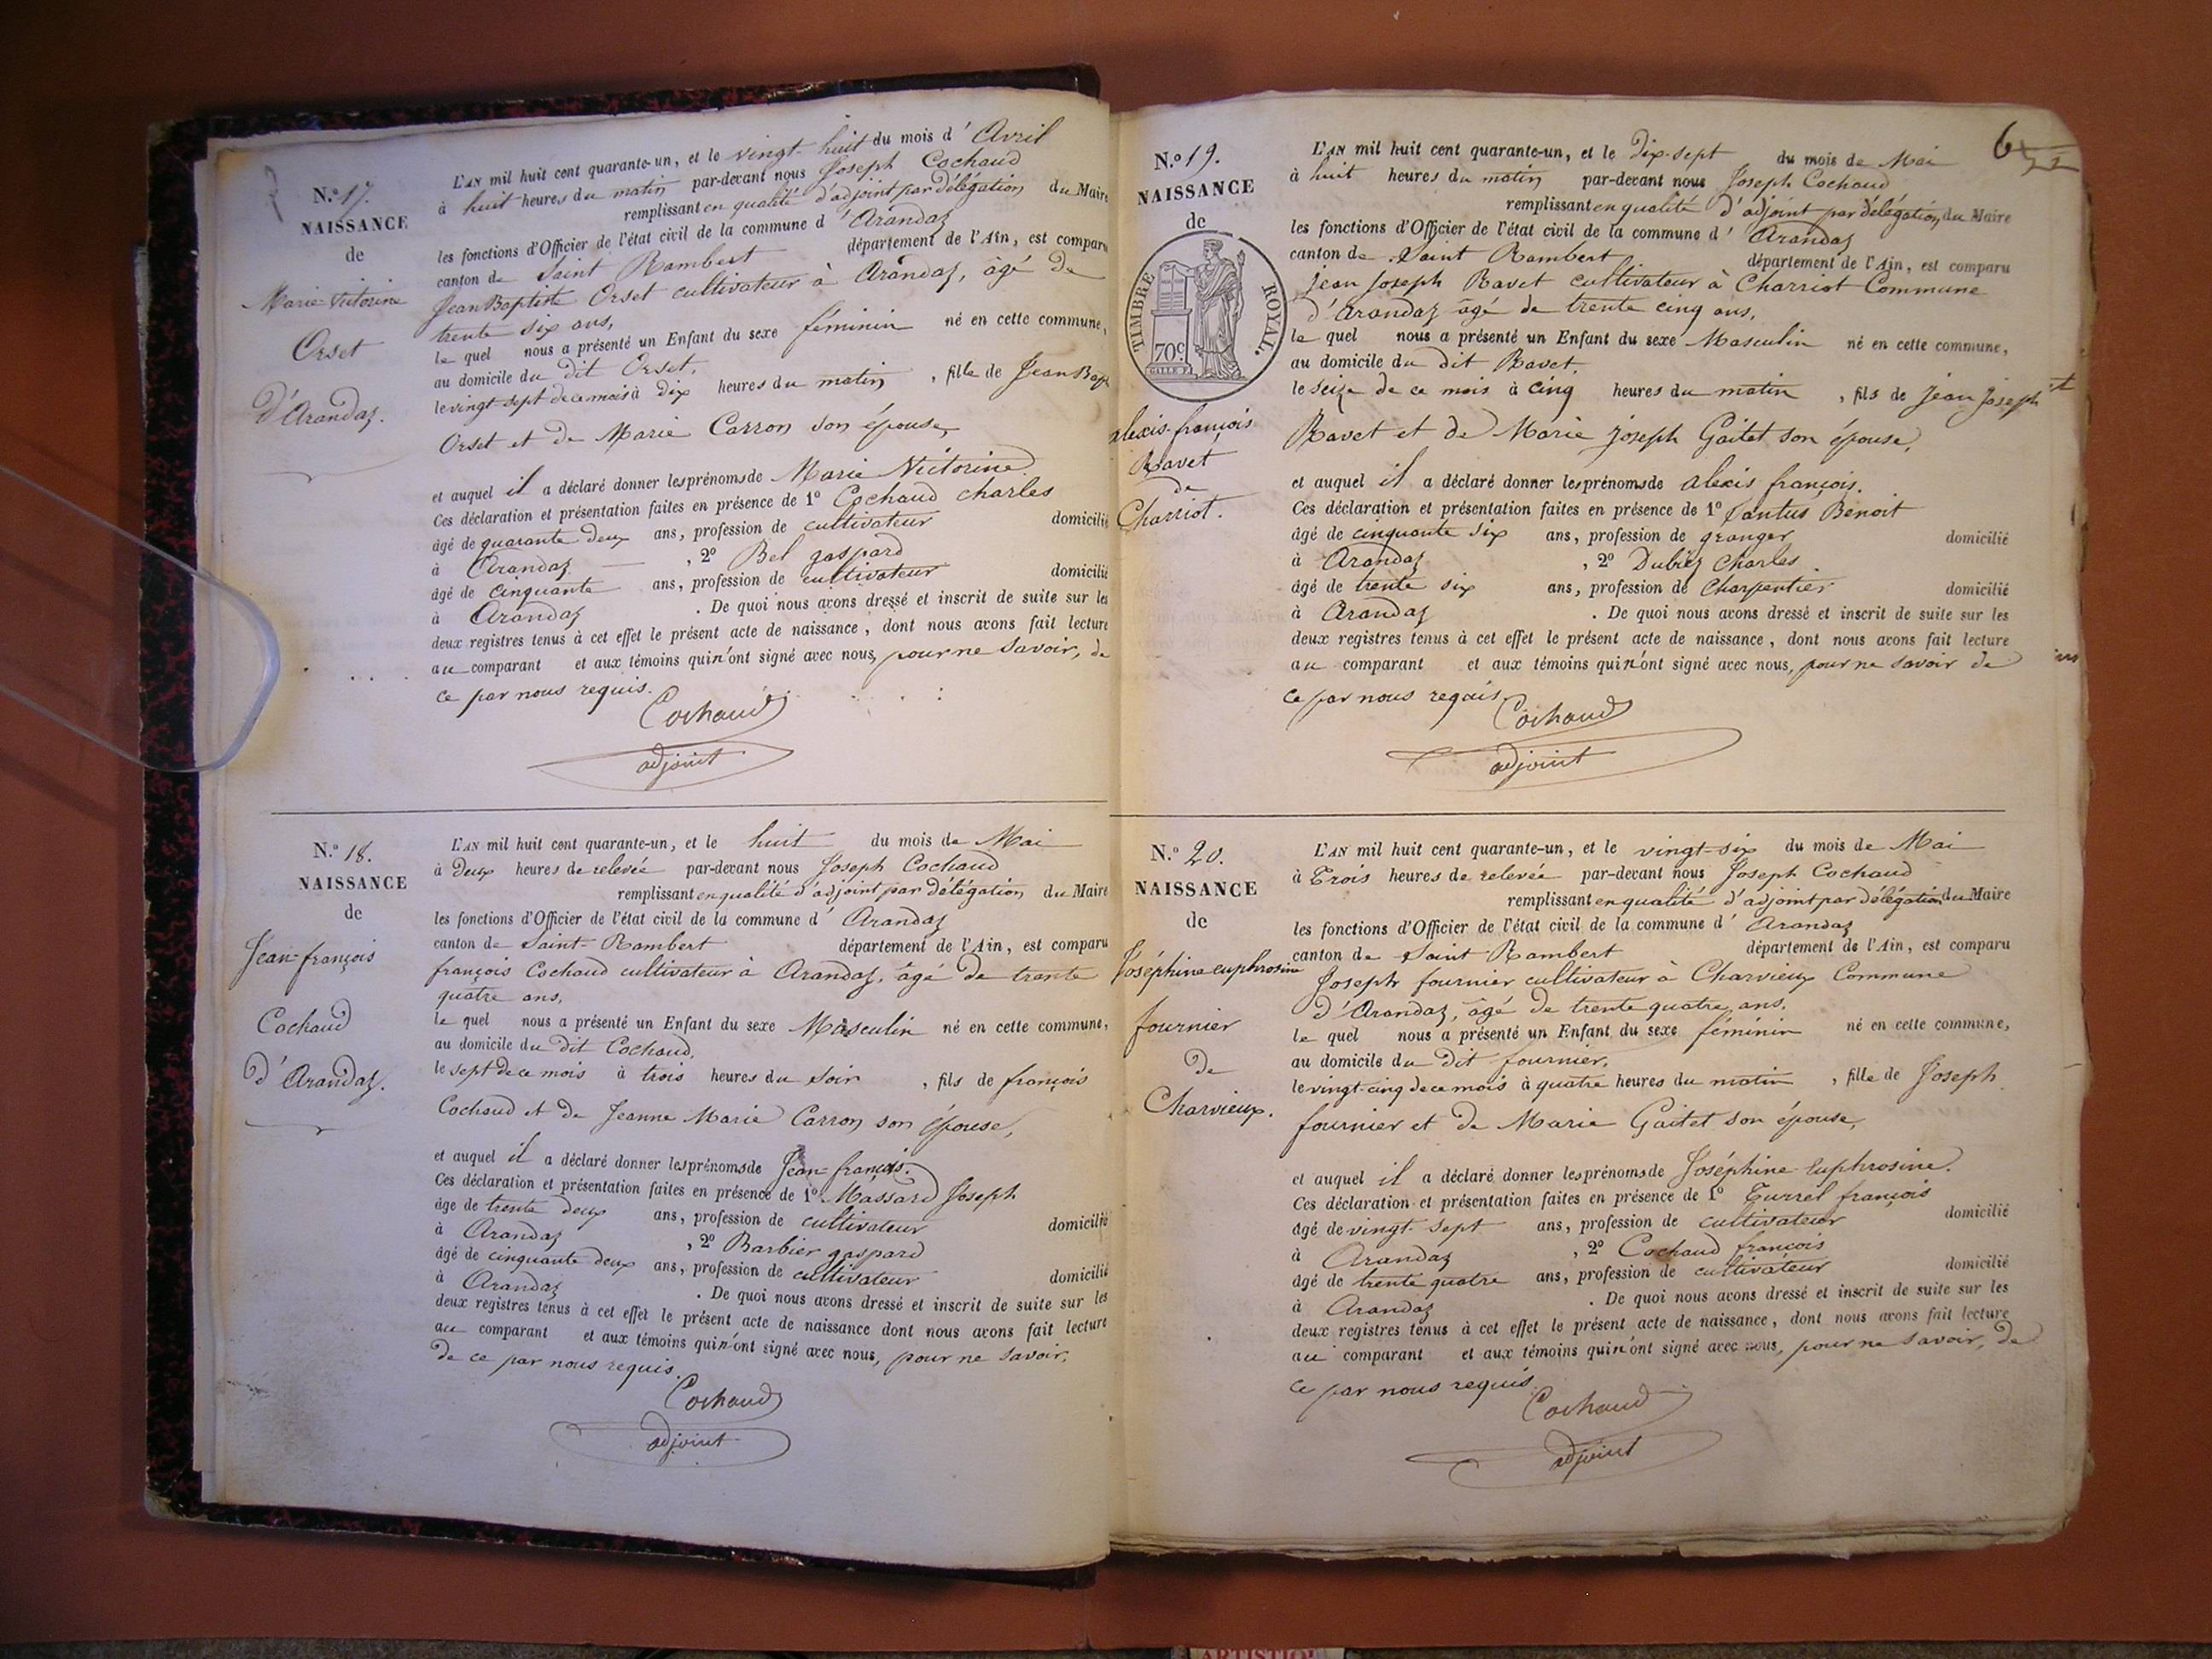 N.º 17.
NAISSANCE
de
Marie Victorine
Orset
d'Arandaz.
L'AN mil huit cent quarante-un, et le vingt-huit du mois d'Avril
à huit heures du matin par-devant nous Joseph Cochaud
remplissant en qualité d'adjoint par délégation du Maire
les fonctions d'Officier de l'état civil de la commune d'Arandaz
canton de Saint Rambert département de l'Ain, est comparu
Jean Baptiste Orset cultivateur à Arandaz, âgé de
trente six ans,
le quel nous a présenté un Enfant du sexe féminin né en cette commune,
au domicile du dit Orset,
le vingt-sept de ce mois à dix heures du matin, fille de Jean Bapt
Orset et de Marie Carron son épouse,
et auquel il a déclaré donner les prénoms de Marie Victorine.
Ces déclaration et présentation faites en présence de 1º Cochaud charles
âgé de quarante deux ans, profession de cultivateur domicilié
à Arandaz, 2º Bel gaspard
âgé de cinquante ans, profession de cultivateur domicilié
à Arandaz. De quoi nous avons dressé et inscrit de suite sur les
deux registres tenus à cet effet le présent acte de naissance, dont nous avons fait lecture
au comparant et aux témoins qui n'ont signé avec nous, pour ne savoir, de
ce par nous requis.
Cochaud
adjoint
N.º 18.
NAISSANCE
de
Jean-françois
Cochaud
d'Arandaz.
L'AN mil huit cent quarante-un, et le huit du mois de Mai
à deux heures de relevée par-devant nous Joseph Cochaud
remplissant en qualité d'adjoint par délégation du Maire
les fonctions d'Officier de l'état civil de la commune d'Arandaz
canton de Saint-Rambert département de l'Ain, est comparu
françois Cochaud cultivateur à Arandaz, âgé de trente
quatre ans,
le quel nous a présenté un Enfant du sexe Masculin né en cette commune,
au domicile du dit Cochaud,
le sept de ce mois à trois heures du soir, fils de françois
Cochaud et de Jeanne Marie Carron son épouse,
et auquel il a déclaré donner les prénoms de Jean-françois.
Ces déclaration et présentation faites en présence de 1º Massard Joseph
âgé de trente deux ans, profession de cultivateur domicilié
à Arandaz, 2º Barbier gaspard
âgé de cinquante deux ans, profession de cultivateur domicilié
à Arandaz. De quoi nous avons dressé et inscrit de suite sur les
deux registres tenus à cet effet le présent acte de naissance dont nous avons fait lecture
au comparant et aux témoins qui n'ont signé avec nous, pour ne savoir,
de ce par nous requis.
Cochaud
adjoint
6
N.º 19.
NAISSANCE
de
TIMBRE ROYAL.
70c
alexis-françois
Ravet
de
Charriot.
L'AN mil huit cent quarante-un, et le dix-sept du mois de Mai
à huit heures du matin par-devant nous Joseph Cochaud
remplissant en qualité d'adjoint par délégation, du Maire
les fonctions d'Officier de l'état civil de la commune d'Arandaz
canton de Saint Rambert département de l'Ain, est comparu
jean Joseph Ravet cultivateur à Charriot Commune
d'Arandaz âgé de trente cinq ans,
le quel nous a présenté un Enfant du sexe Masculin né en cette commune,
au domicile du dit Ravet,
le seize de ce mois à cinq heures du matin, fils de jean joseph
Ravet et de Marie joseph Gaitet son épouse,
et auquel il a déclaré donner les prénoms de alexis françois.
Ces déclaration et présentation faites en présence de 1º Benoit
âgé de cinquante six ans, profession de granger domicilié
à Arandaz, 2º Dubiez Charles
âgé de trente six ans, profession de Charpentier domicilié
à Arandaz. De quoi nous avons dressé et inscrit de suite sur les
deux registres tenus à cet effet le présent acte de naissance, dont nous avons fait lecture
au comparant et aux témoins qui n'ont signé avec nous, pour ne savoir de
ce par nous requis
Cochaud
adjoint
N.º 20.
NAISSANCE
de
Joséphine euphrosine
fournier
de
Charvieux.
L'AN mil huit cent quarante-un, et le vingt-six du mois de Mai
à Trois heures de relevée par-devant nous Joseph Cochaud
remplissant en qualité d'adjoint par délégation du Maire
les fonctions d'Officier de l'état civil de la commune d'Arandaz
canton de Saint Rambert département de l'Ain, est comparu
Joseph fournier cultivateur à Charvieux Commune
d'Arandaz, âgé de trente quatre ans.
le quel nous a présenté un Enfant du sexe féminin né en cette commune,
au domicile du dit fournier,
le vingt-cinq de ce mois à quatre heures du matin, fille de Joseph
fournier et de Marie Gaitet son épouse,
et auquel il a déclaré donner les prénoms de Joséphine Euphrosine.
Ces déclaration et présentation faites en présence de 1º Turrel françois
âgé de vingt-sept ans, profession de cultivateur domicilié
à Arandaz, 2º Cochaud françois
âgé de trente quatre ans, profession de cultivateur domicilié
à Arandaz. De quoi nous avons dressé et inscrit de suite sur les
deux registres tenus à cet effet le présent acte de naissance, dont nous avons fait lecture
au comparant et aux témoins qui n'ont signé avec nous, pour ne savoir, de
ce par nous requis.
Cochaud
adjoint